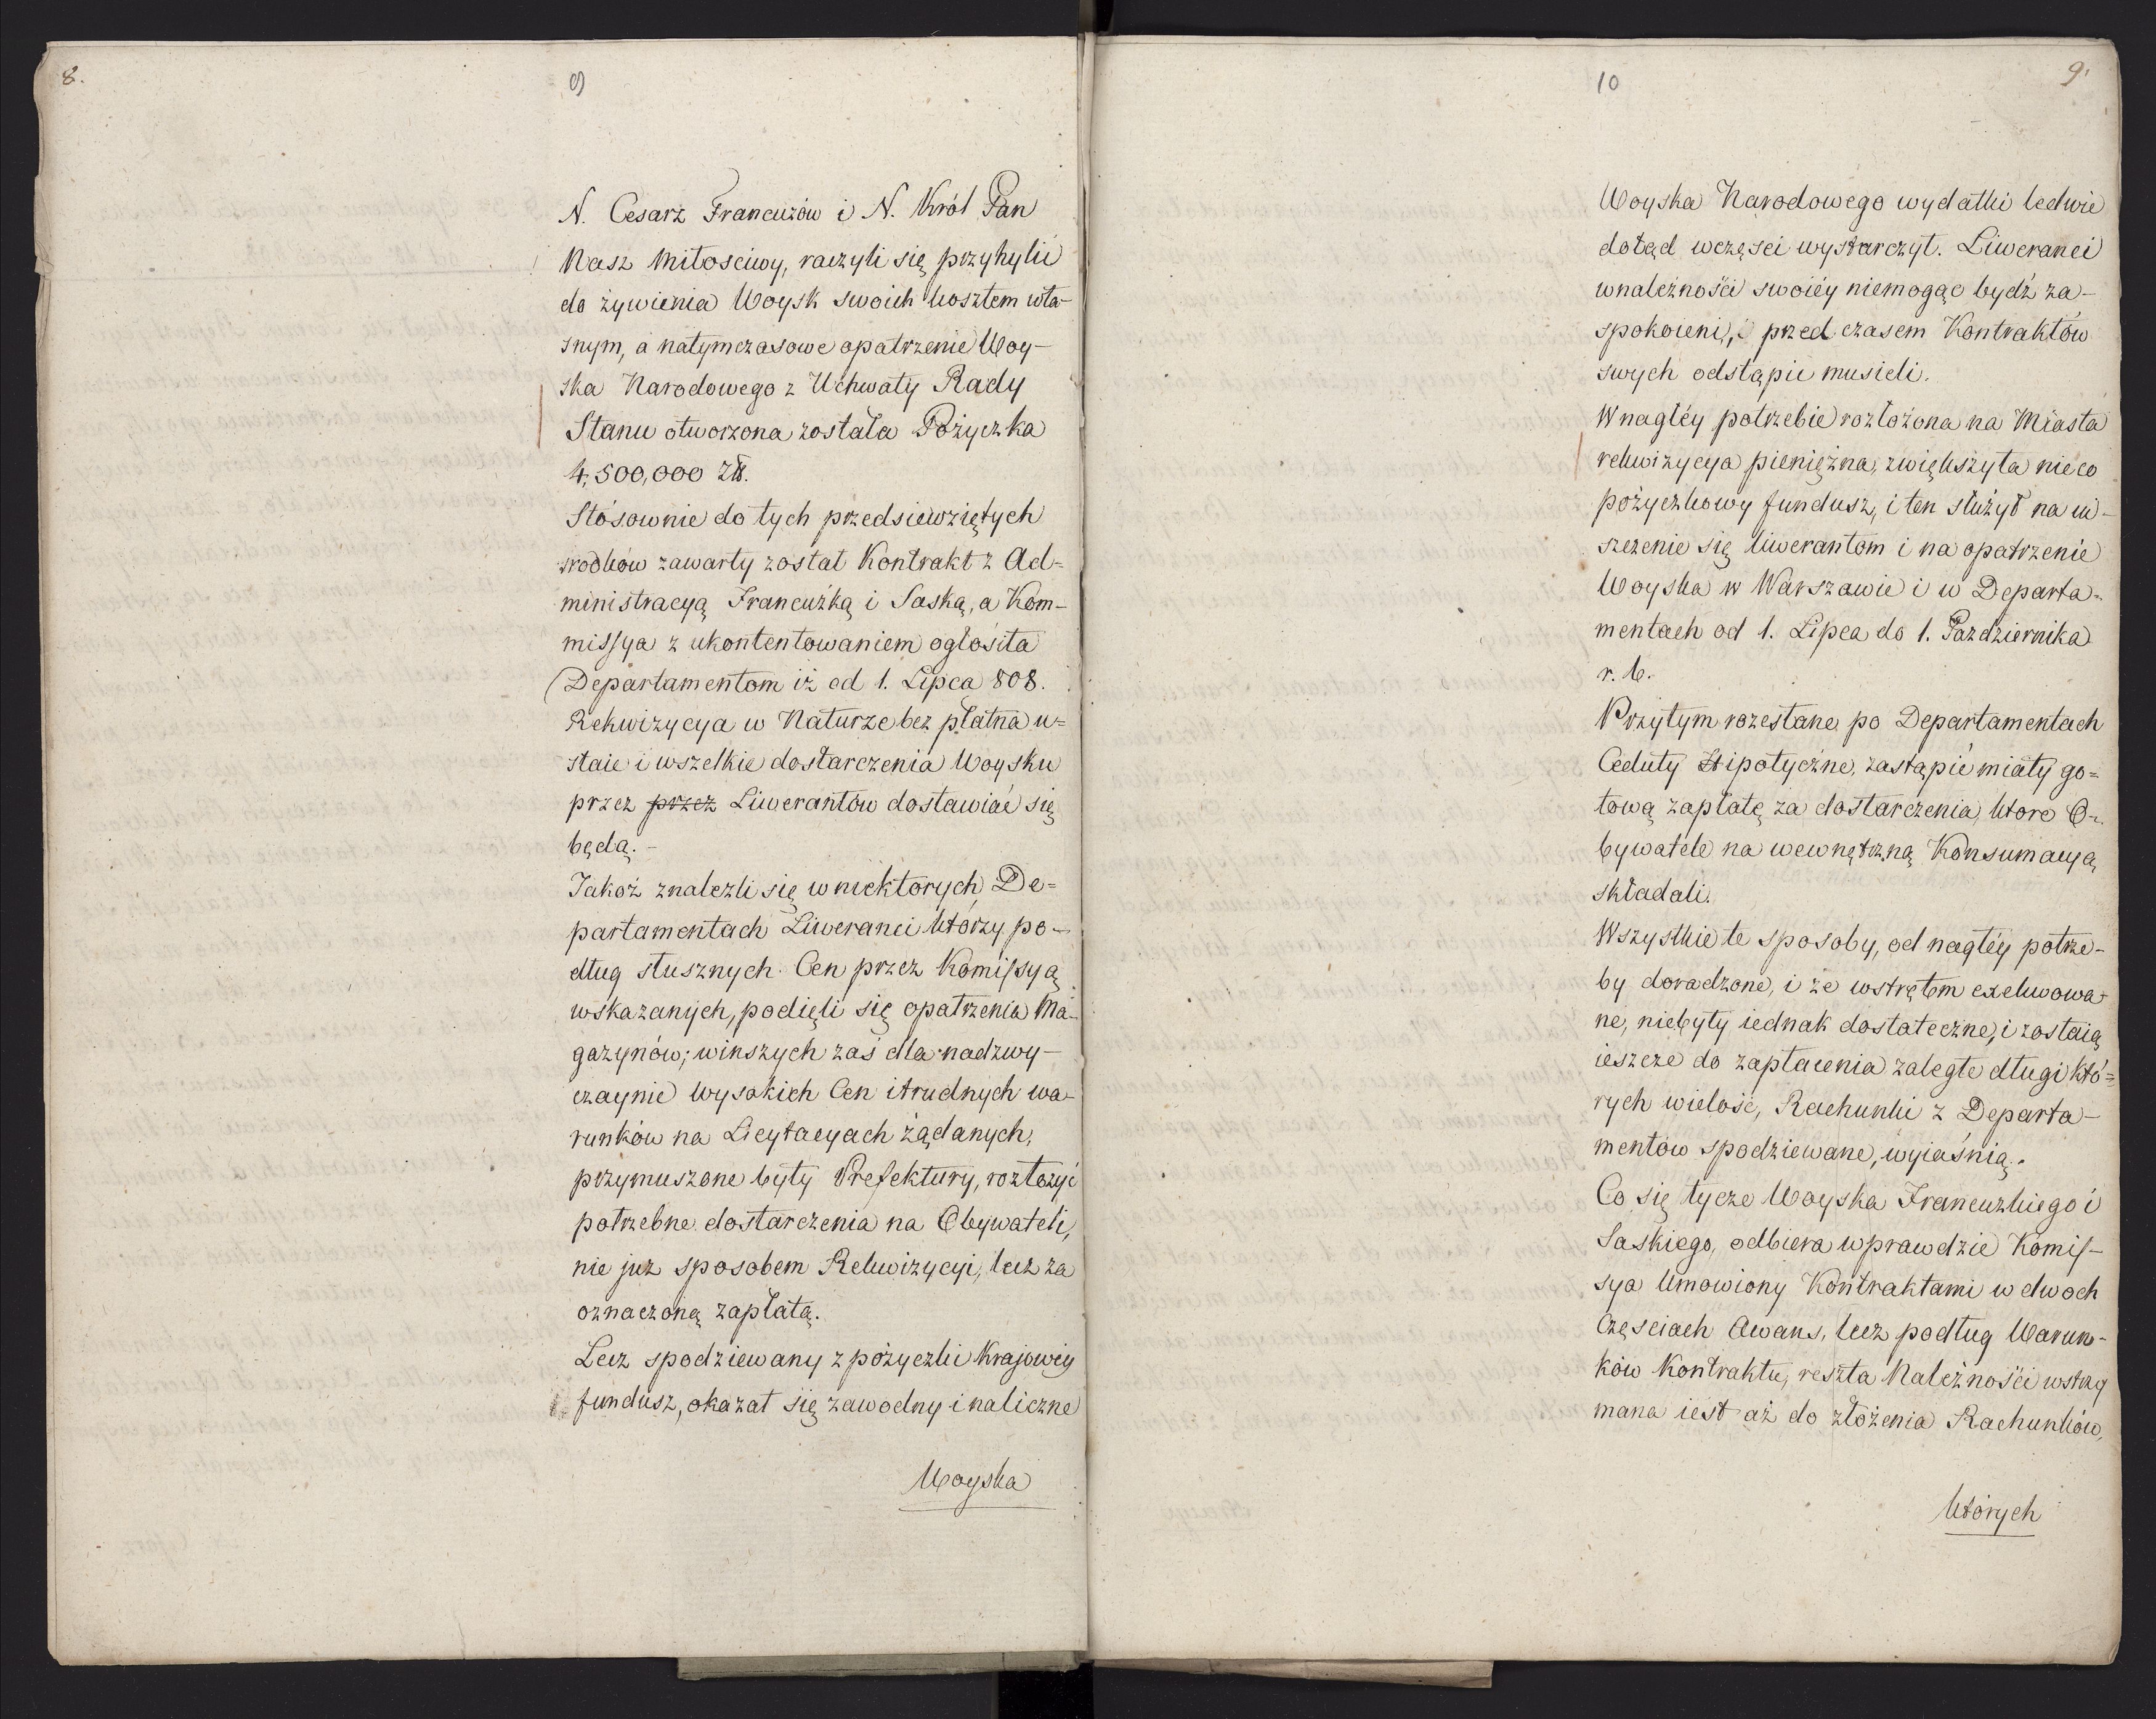 8.
9
N. Cesarz Francuzów i N. Król Pan
Nasz Miłosciwy, raczyli się przyhylić
do żywienia Woysk swoich kosztem wła-
snym, a natymczasowe opatrzenie Woy-
ska Narodowego z Uchwały Rady
Stanu otworzona została Pożyczka
4,500,000 Zł.
Stósownie do tych przedsiewziętych
srodków zawarty został Kontrakt z Ad=
ministracyą Francuźką i Saską, a Kom-
missya z ukontentowaniem ogłosiła
Departamentom iż od 1. Lipca 808.
Rekwizycya w Naturze bez płatna u=
staie i wszelkie dostarczenia Woysku
przez przez Liwerantów dostawiać się
będą. -
Jakoż znalezli się w niektorych De=
partamentach Liweranci którzy po-
dług słusznych Cen przez Komissyą
wskazanych, podięli się opatrzenia Ma-
gazynów; winszych zaś dla nadzwy-
czaynie wysokich Cen i trudnych wa-
runków na Licytacyach żądanych,
przymuszone były Prefektury, rozłożyć
potrzebne dostarczenia na Obywateli,
nie już sposobem Rekwizycyi, lecz za
oznaczoną zapłatą.
Lecz spodziewany z pożyczki Krajowéy
fundusz, okazał się zawodny i naliczne
Woyska
10
9.
Woyska Narodowego wydatki ledwie
dotąd wczęsci wystarczył. Liweranci
wnależności swoiéy niemogąc bydź za-
spokoieni, przed czasem Kontraktów
swych odstąpić musieli.
W nagłéy potrzebie rozłożona na Miasta
rekwizycya pieniężna, zwiększyła nieco
pożyczkowy fundusz, i ten służył na ui-
szczenie się liwerantom i na opatrzenie
Woyska w Warszawie i w Departa=
mentach od 1. Lipca do 1. Pazdziernika
r. b.
Przytym rozesłane po Departamentach
Ceduły Hipotyczne, zastąpić miały go=
tową zapłatę za dostarczenia, ktore O-
bywatele na wewnętrzną Konsumacyą
składali.
Wszystkie te sposoby, od nagłéy potrze-
by doradzone, i ze wstrętem exekwowa-
ne, niebyły iednak dostateczne, i zostaią
ieszcze do zapłacenia zaległe długi któ=
rych wielość, Rachunki z Departa-
mentów spodziewane, wyiaśnią.
Co się tycze Woyska Francuzkiego i
Saskiego, odbiera wprawdzie Komis-
sya Umowiony Kontraktami w dwoch
Częsciach Awans, lecz podług Warun-
ków Kontraktu, reszta Należności wstrzy
mana iest aż do złożenia Rachunków,
których